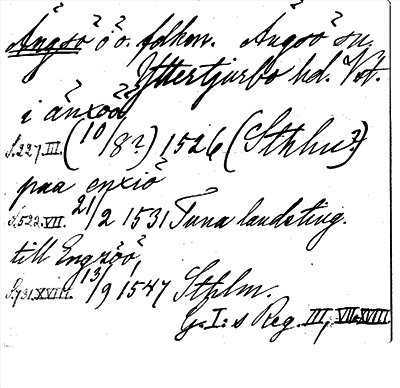 Ängsö ö o. fdkm. Ängsö sn.
Yttertjurbo hd. Vst.
i änxöö
S. 227. III. (10/8?) 1526 (Sthlm?)
paa enxiö
S. 522. VII. 21/2 1531 Tuna landsting.
till Engzöö,
S. 731. XVIII. 13/9 1547 Sthlm.
G. I:s Reg. III, VII, XVIII.